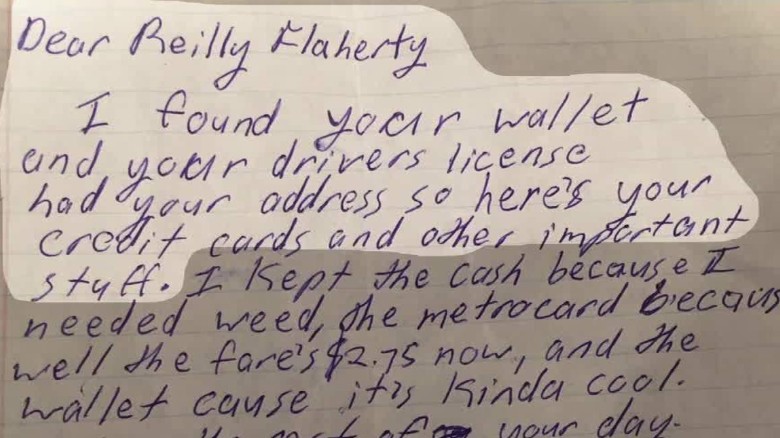 Dear Reilly Flaherty
I found your wallet
and your drivers license
had your address so here's your
credit cards and other important
stuff. I kept the cash because I
needed weed, the metrocard becaus
well the fare's $2.75 now, and the
wallet cause it's kinda cool.
the rest of your day.